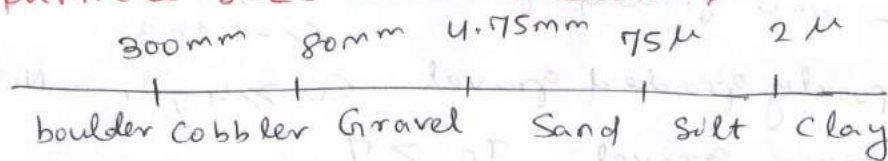 300mm 80mm 4.75mm 75μ 2μ
boulder cobbler Gravel Sand Silt Clay